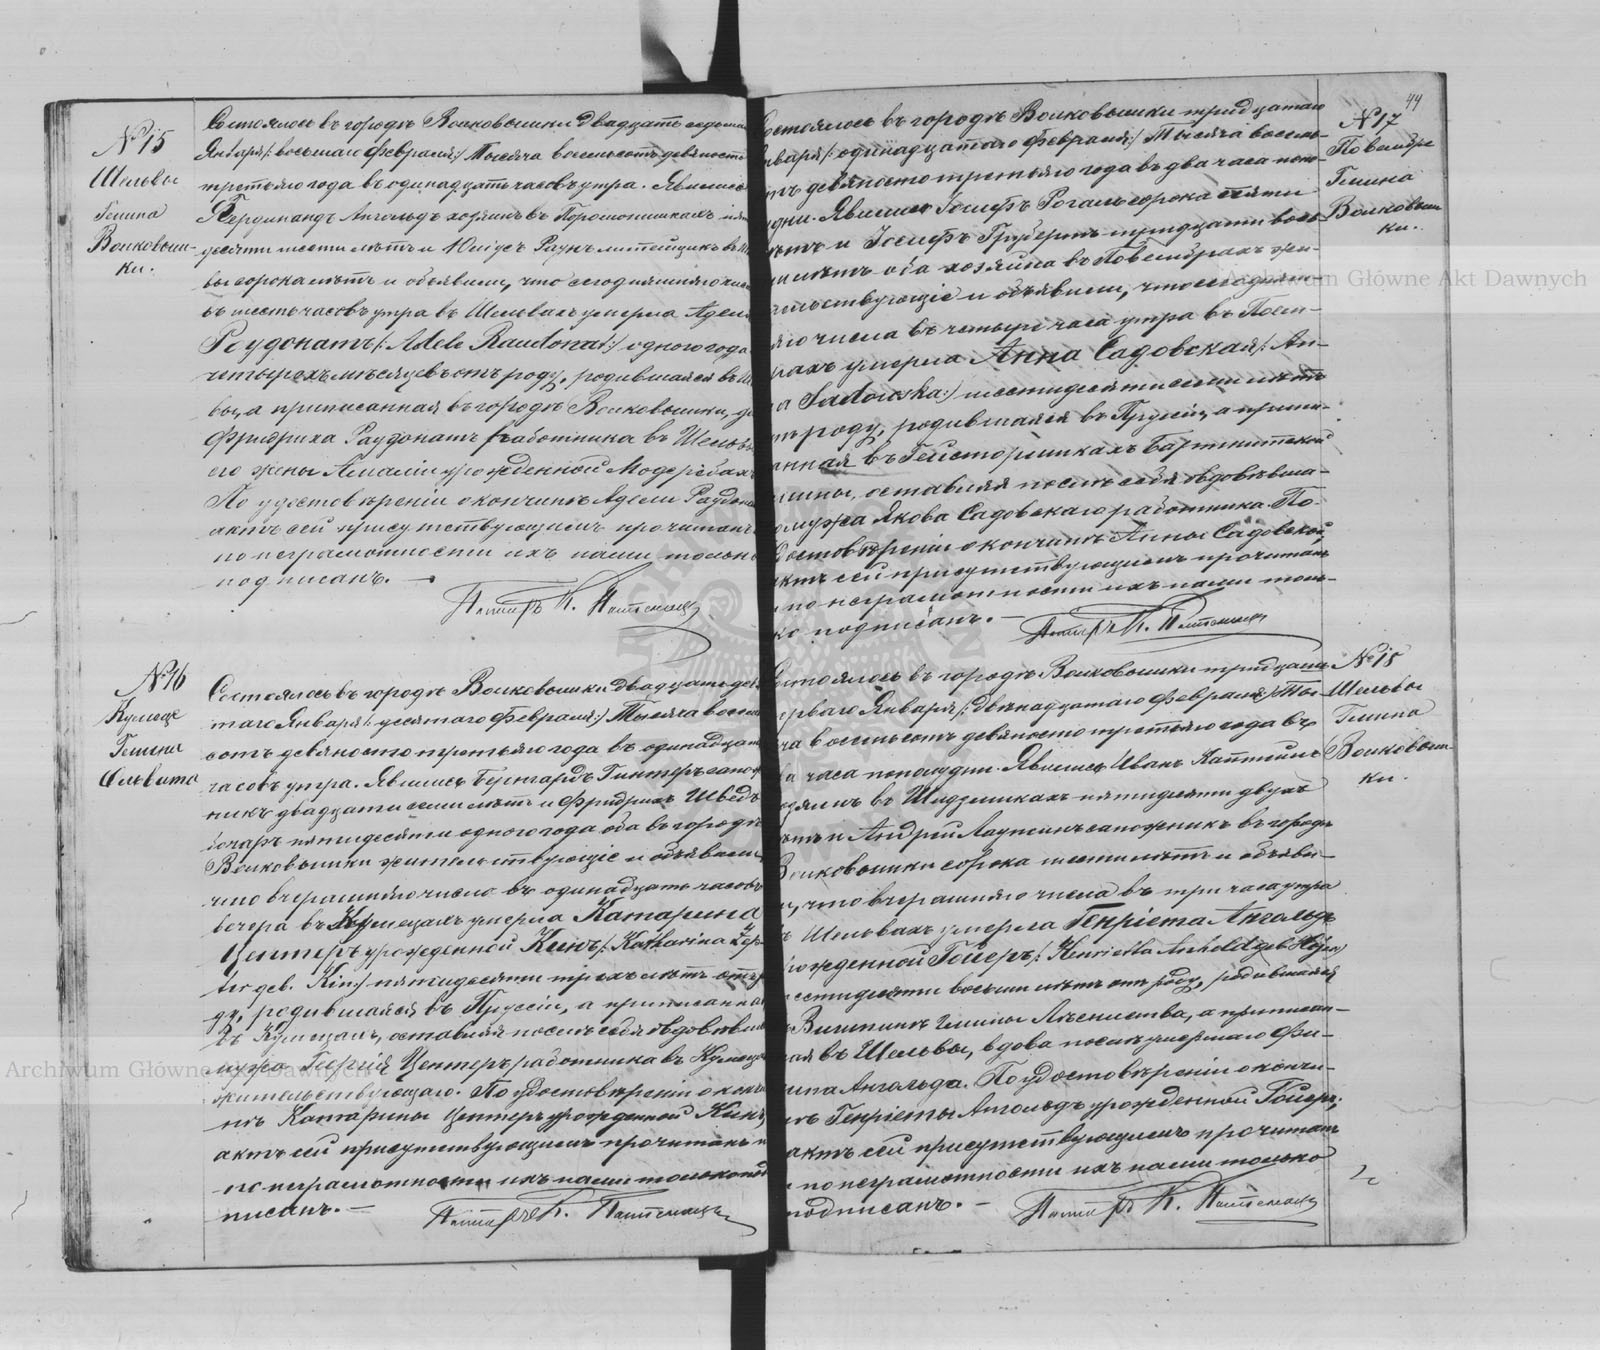 № 15
Шельвы
Гмина
Волковыш-
ки.
Состоялось въ городѣ Волковышки двадцать седьмаго
Января /: восьмаго Февраля :/ Тысяча восемьсотъ девяносто
третьяго года въ одинадцать часовъ утра. Явились
Фердинандъ Ангольдъ хозяинъ въ
десяти шести лѣтъ и Юліусъ Раукъ литейщикъ въ
вы сорока лѣтъ и объявили, что сегодняшняго числа
въ шесть часовъ утра въ Шельвахъ умерла Адель
Раудонатъ /: Adele Raudonat :/ одного года
четырехъ мѣсяцевъ отъ роду, родившаяся въ
вы, а приписанная въ городѣ Волковышки, до
Фридриха Раудонатъ работника въ Шельвы
его жены Амаліи урожденной
По удостовѣреніи о кончинѣ Адели Раудонатъ
актъ сей присутствующимъ прочитанъ
по неграмотности ихъ нами только
подписанъ. —
Пасторъ К.
№ 16
Кумеце
Гмина
Ольвита
Состоялось въ городѣ Волковышки двадцать девя
таго Января /: десятаго Февраля :/ Тысяча восемь
сотъ девяносто третьяго года въ одинадцать
часовъ утра. Явились Бернгардъ Гинтеръ сапож
никъ двадцати семи лѣтъ и Фридрихъ Шведъ
бочаръ пятидесяти одного года оба въ городѣ
Волковышки жительствующіе и объявили,
что вчерашняго число въ одинадцать часовъ
вечера въ Кумецахъ умерла Катарина
Центеръ урожденной Кинъ /: Katharina Zep-
ter geb. Kin :/ пятидесяти трехъ лѣтъ отъ ро
ду, родившаяся въ Пруссіи, а приписанная
въ Кумецахъ, оставляя послѣ себя овдовѣвшаго
мужа Георгія Центеръ работника въ Кумецахъ
жительствующаго. По удостовѣреніи о кон
нѣ Катарины Центеръ урожденной Кинъ,
актъ сей присутствующимъ прочитанъ и
по неграмотности ихъ нами только под
писанъ. —
Пасторъ К.
44
№ 17
Повембре
Гмина
Волковыш-
ки.
Состоялось въ городѣ Волковышки тридцатаго
Января /: одинадцатаго Февраля :/ Тысяча восемь-
сотъ девяносто третьяго года въ два часа попо-
лудни. Явились Іосифъ Рогаль сорока пяти
лѣтъ и Іосифъ Груберъ тридцати вось
ми лѣтъ оба хозяина въ Повембрахъ жи-
тельствующіе и объявили, что сегодняш-
няго числа въ четыре часа утра въ Повем-
рахъ умерла Анна Садовская /: An-
na Sadowska :/ шестидесяти семи лѣтъ
отъ роду, родившаяся въ Пруссіи, а припи-
санная въ Гейсторишкахъ Бартнитской
гмины, оставляя послѣ себя овдовѣвша-
го мужа Якова Садовскаго работника. По
удостовѣреніи о кончинѣ Анны Садовской,
актъ сей присутствующимъ прочитанъ
и по неграмотности ихъ нами толь-
ко подписанъ. —
Пасторъ К.
№ 18
Шельвы
Гмина
Волковыш-
ки.
Состоялось въ городѣ Волковышки тридцать
перваго Января /: двѣнадцатаго Февраля :/ Ты-
сяча восемьсотъ девяносто третьяго года въ
два часа пополудни. Явились Иванъ
хозяинъ въ пятидесяти двухъ
лѣтъ и Андрей сапожникъ въ городѣ
Волковышки сорока шести лѣтъ и объяви-
ли, что вчерашняго числа въ три часа утра
въ Шельвахъ умерла Генріета Ангольдъ
урожденной Гойеръ /: Henrietta Anhold geb. Hojer :/
шестидесяти восьми лѣтъ отъ роду, родившаяся
въ гмины а приписан-
ная въ Шельвы, вдова послѣ умершаго Фи-
липа Ангольда. По удостовѣреніи о кончи-
нѣ Генріеты Ангольдъ урожденной Гойеръ,
актъ сей присутствующимъ прочитанъ
и по неграмотности ихъ нами только
подписанъ. —
Пасторъ К.
Archiwum Główne Akt Dawnych
Archiwum Główne Akt Dawnych